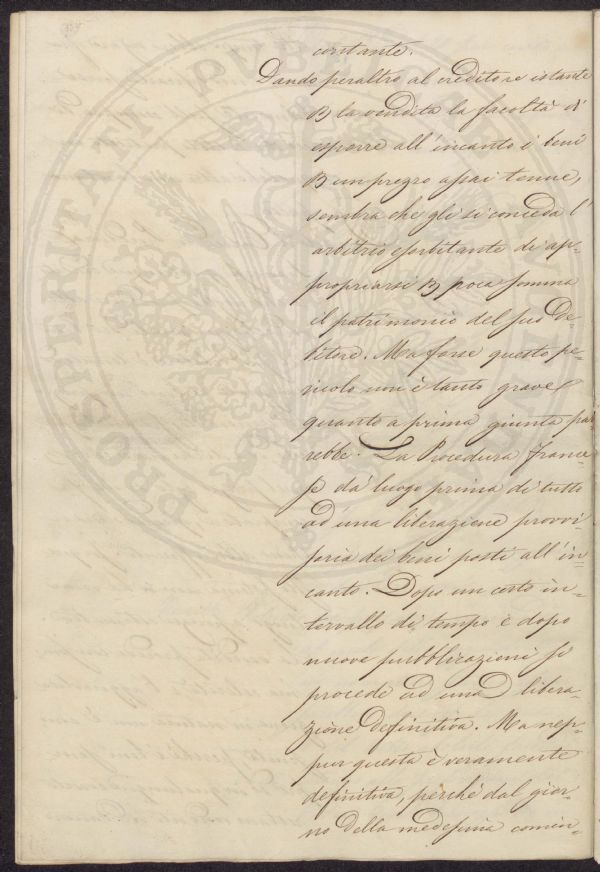 contante.
Dando peraltro al creditore istante
℔ la vendita la facoltà di
esporre all'incanto i beni
℔ un prezzo assai tenue,
sembra che gli si conceda l'
arbitrio esorbitante di ap=
propriarsi ℔ poca somma
il patrimonio del suo de=
bitore. Ma forse questo pe=
ricolo non è tanto grave
quanto a prima giunta par=
rebbe. La Procedura france=
se dà luogo prima di tutto
ad una liberazione provvi=
soria dei beni posti all'in=
canto. Dopo un certo in=
tervallo di tempo e dopo
nuove pubblicazioni si
procede ad una libera=
zione definitiva. Ma nep=
pur questa è veramente
definitiva, perché dal gior=
no della medesima comin=
PROSPERITATI PUBLICAE